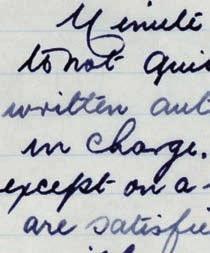 Minute
to not quit
written aut
in charge.
except on a
are satisfie